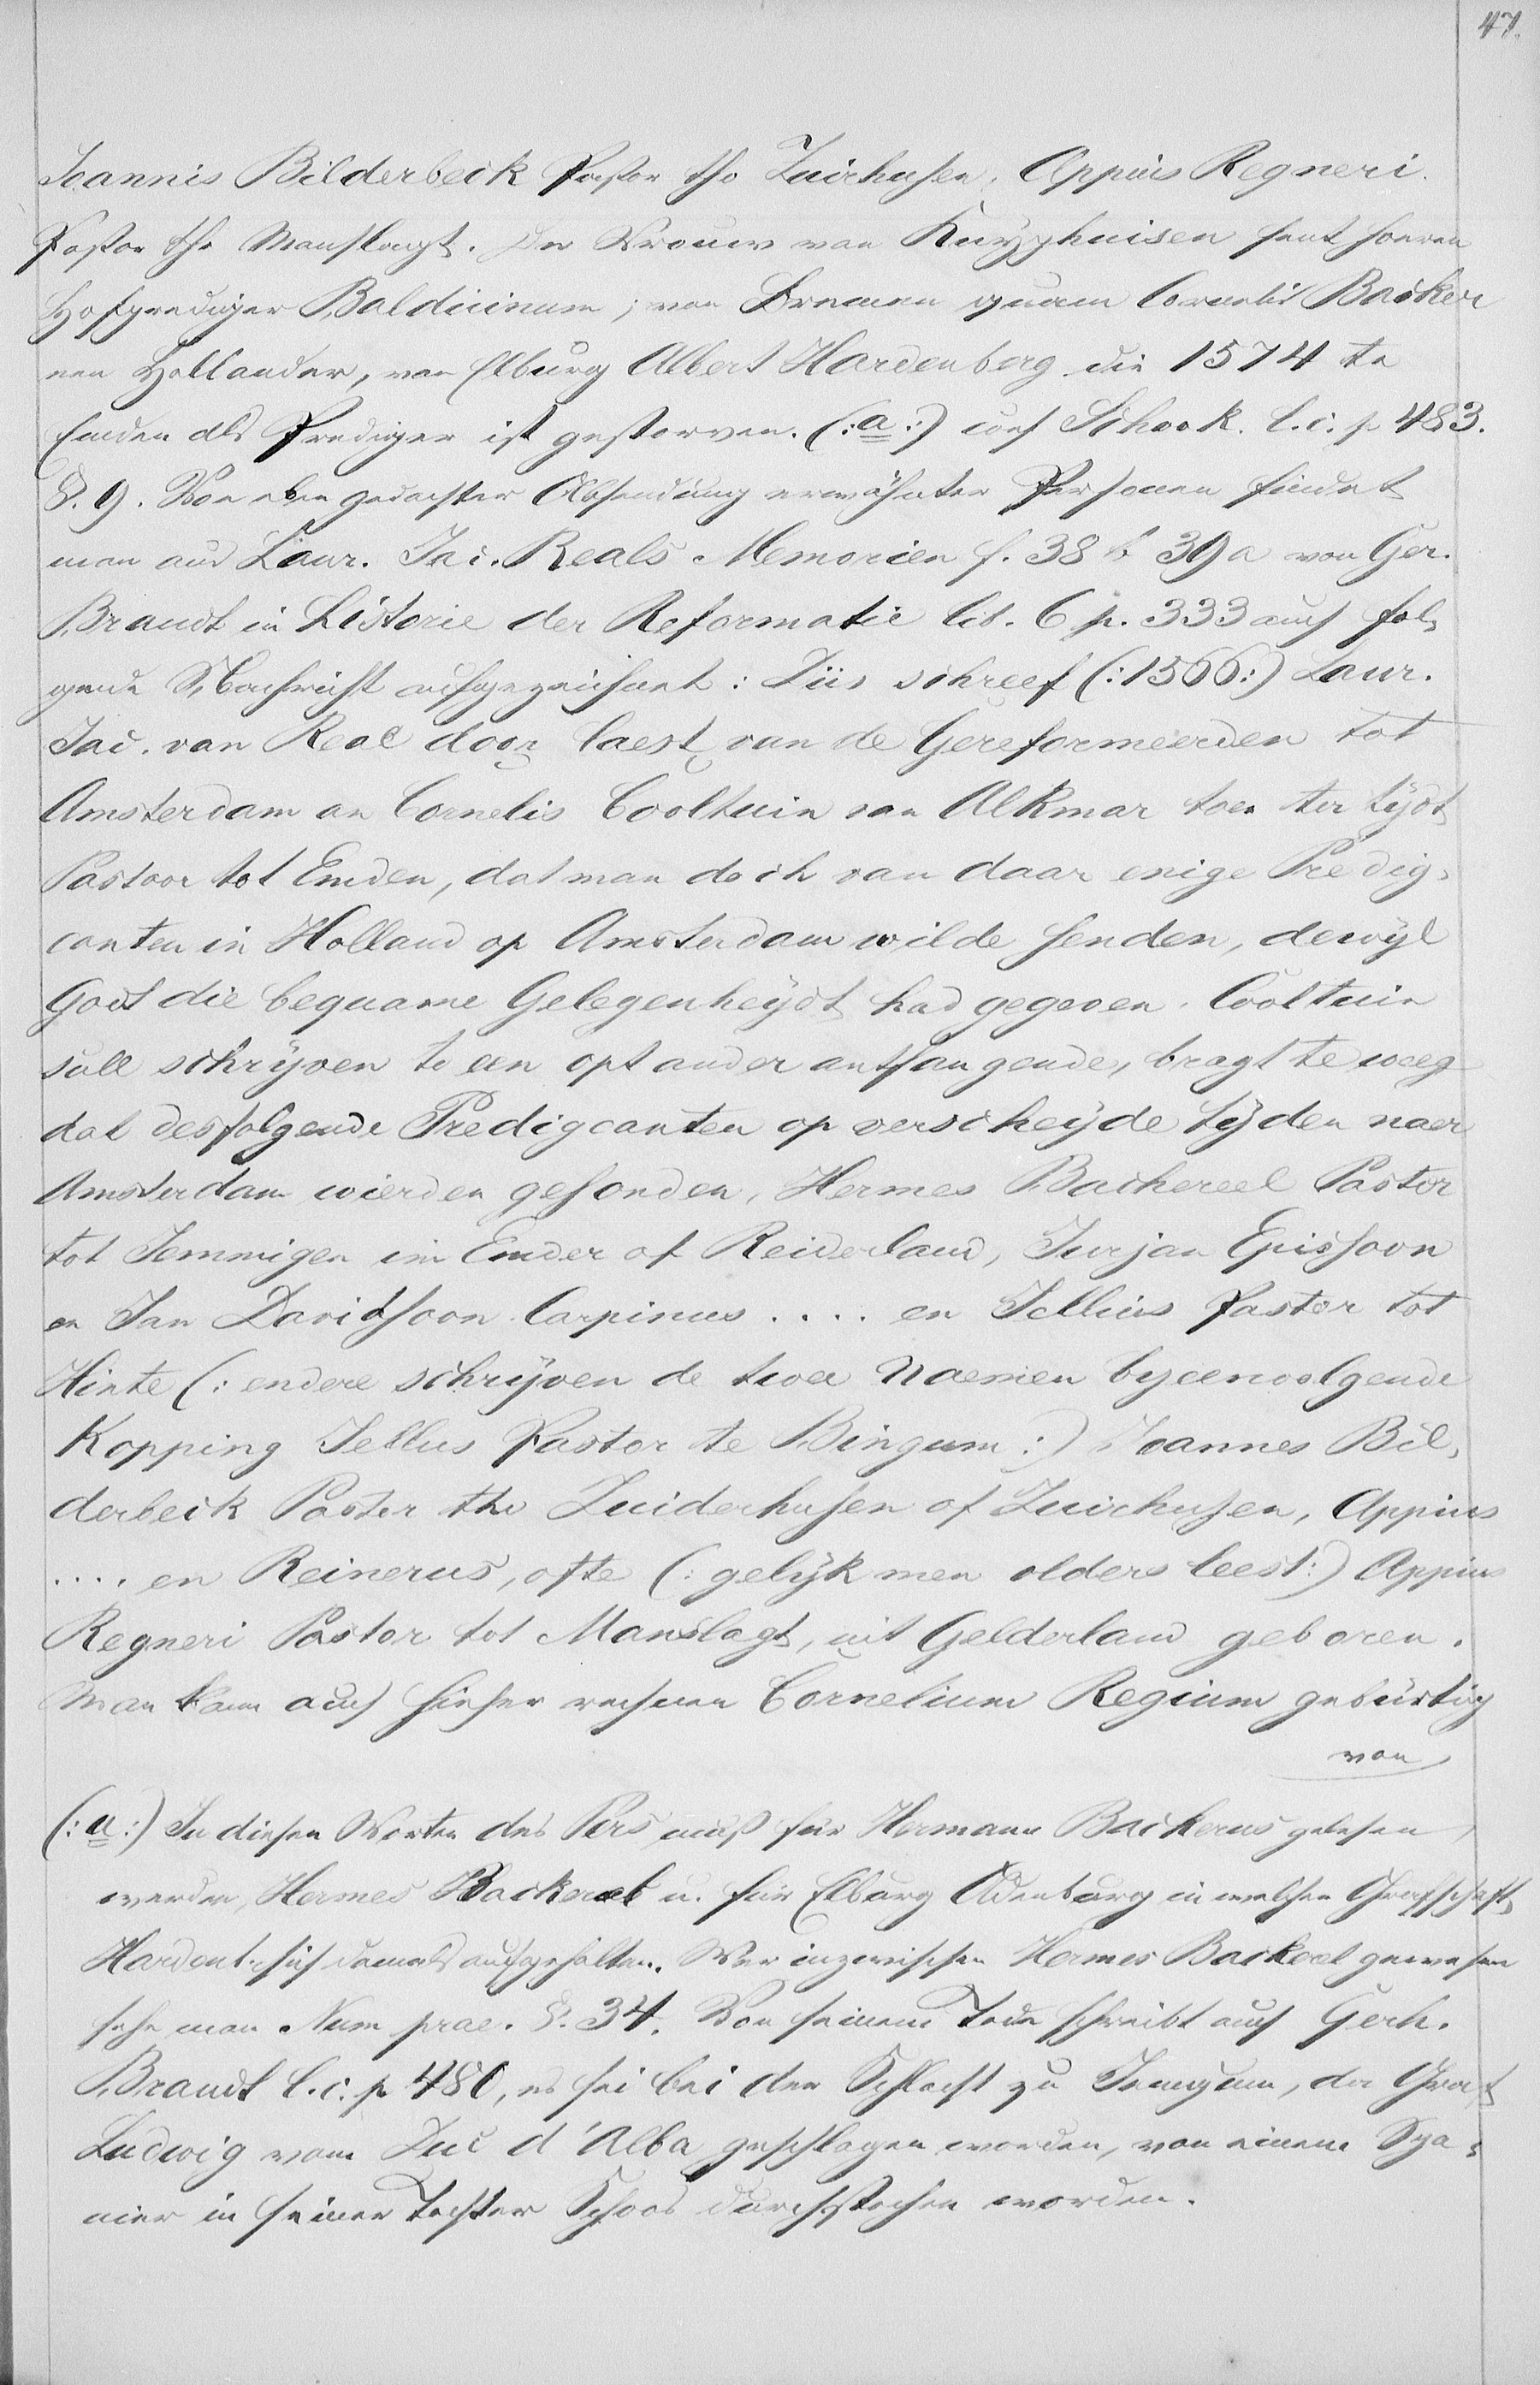 47.
Joannis Bilderbeck Pastor tho Zuirhusen, Appius Regneri
Pastor tho Manslagt. De Vrouw van Knyphuisen sent hoeren
Hofprediger Balduinum; van Bremen quam Cornelis Backer
een Hollander, van Elburg Albert Hardenberg die 1574 te
Emden als Prediger ist gestorven. (:a:) conf Schook. l. c. p 483.
§. 9. Von eben gedachter Absendung erwähnter Personen findet
man aus Laur. Jac. Reals Memorien f. 38 b 39 a von Ger.
Brandt in Historie der Reformatie lib. 6 p. 333 auch fol,
gende Nachricht aufgezeichnet: Dus schreef (:1566:) Laur.
Jac. van Real door laest van de Gereformeerden tot
Amsterdam an Cornelis Cooltuin van Alkmar toen ter tijdt
Pastoor tot Emden, dat man doch van daar enige Predig,
canten in Holland op Amsterdam wilde senden, dewijl
Godt die bequame Gelegenheijdt had gegeven. Cooltuin
sulk schrijven te een opt ander antfangende, bragt te weeg
dat desfolgende Predigcanten op verscheijde tijden naer
Amsterdam wierden gesonden, Hermes Backereel Pastor
tot Jemmigen im Emder of Reiderland, Jurjan Epissoon
en Jan Davidsoon Carpinus .... en Jellius Pastor tot
Hinte (: endere schrijven de twee Naemen byeenvolgende
Kopping Jellus Pastor te Bingum :) Joannes Bil,
derbeck Pastor tho Zuiderhusen of Zuirhusen, Appius
.... en Reinerus, ofte (: gelijk men olders leest :) Appius
Regneri Pastor tot Manslagt, uit Gelderland geboren.
Man kann auch hieher rechnen Cornelium Regium gebürtig
von
(:a:) In diesen Worten des Pers muß für Hermann Backerus gelesen
werden, Hermes Backereel u. für Elburg Oldenburg in welcher Grafschaft
Hardenb. sich damals aufgehalten. Wer inzwischen Hermes Backereel gewesen
sehe man Num prae. §. 34. Von seinem Tode schreibt auch Gerh.
Brandt l. c. p 480, es sei bei der Schlacht zu Jemgum, da Graf
Ludwig vom Duc d'Alba geschlagen worden, von einem Spa,
nier in seiner Tochter Schoos durchstochen worden.